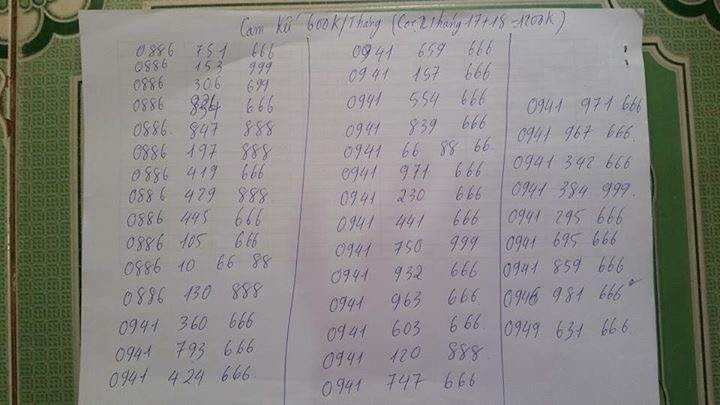 Cam kết 600K/Tháng (Cọc 2 tháng 17+18 = 1200K)
0886 751 666
0886 153 999
0886 306 699
0886 834 666
0886 847 888
0886 197 888
0886 419 666
0886 479 888
0886 445 666
0886 105 666
0886 10 66 88
0886 130 888
0941 360 666
0941 793 666
0941 424 666.
0941 659 666
0941 157 666
0941 554 666
0941 839 666
0941 66 88 66.
0941 971 666
0941 230 666
0941 441 666
0941 750 999
0941 932 666
0941 963 666
0941 603 666
0941 120 888
0941 747 666
0941 971 666
0941 967 666.
0941 342 666
0941 384 999.
0941 295 666
0941 695 666
0941 859 666
981 666
0949 631 666.